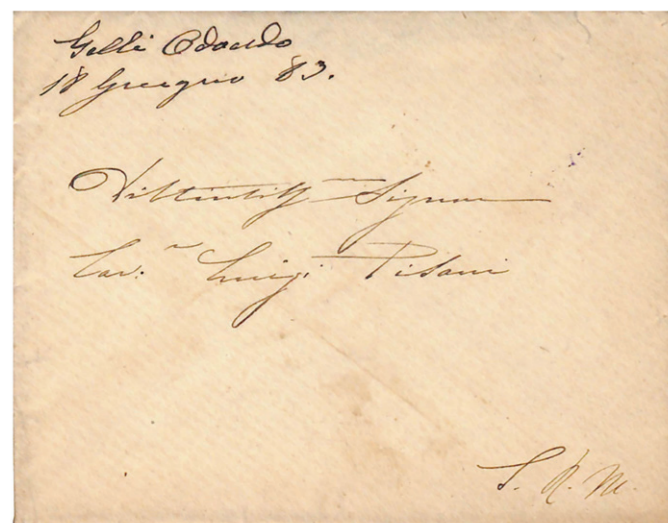 Gelli Odoardo
18 Giugno 83.
Distintiss.mo Signor
Cav. Luigi Pisani
S. R. M.